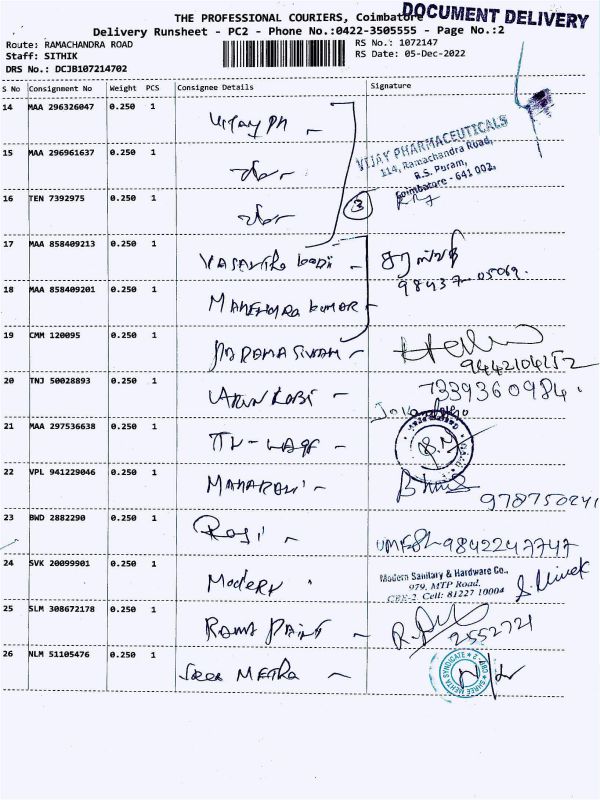 THE PROFESSIONAL COURIERS, Coimbatore
DOCUMENT DELIVERY
Delivery Runsheet - PC2 - Phone No.:0422-3505555 - Page No.:2
Route: RAMACHANDRA ROAD
RS No.: 1072147
Staff: SITHIK
RS Date: 05-Dec-2022
DRS No.: DCJB107214702
S No Consignment No Weight PCS Consignee Details Signature
14 MAA 296326047 0.250 1 Vijay Ph
VIJAY PHARMACEUTICALS
114, Ramachandra Road,
R.S. Puram,
Coimbatore - 641 002.
15 MAA 296961637 0.250 1
16 TEN 7392975 0.250 1
3
17 MAA 858409213 0.250 1
98437-05069.
18 MAA 858409201 0.250 1 Mahendra kumar
19 CMM 120095 0.250 1 Paramasivam
9442104152
20 TNJ 50028893 0.250 1 Arun Rabi
7339360984.
21 MAA 297536638 0.250 1
22 VPL 941229046 0.250 1 Maharani
978750241
23 BWD 2882290 0.250 1 Rosi
9842247747
24 SVK 20099901 0.250 1 Modern
Modern Sanitary & Hardware Co.,
979, MTP Road,
CBE-2. Cell: 81227 10004
S. Vivek
25 SLM 308672178 0.250 1 Rama Paint
2552721
26 NLM 51105476 0.250 1 Sree Metha
SHREE MEHTA SYNDICATE